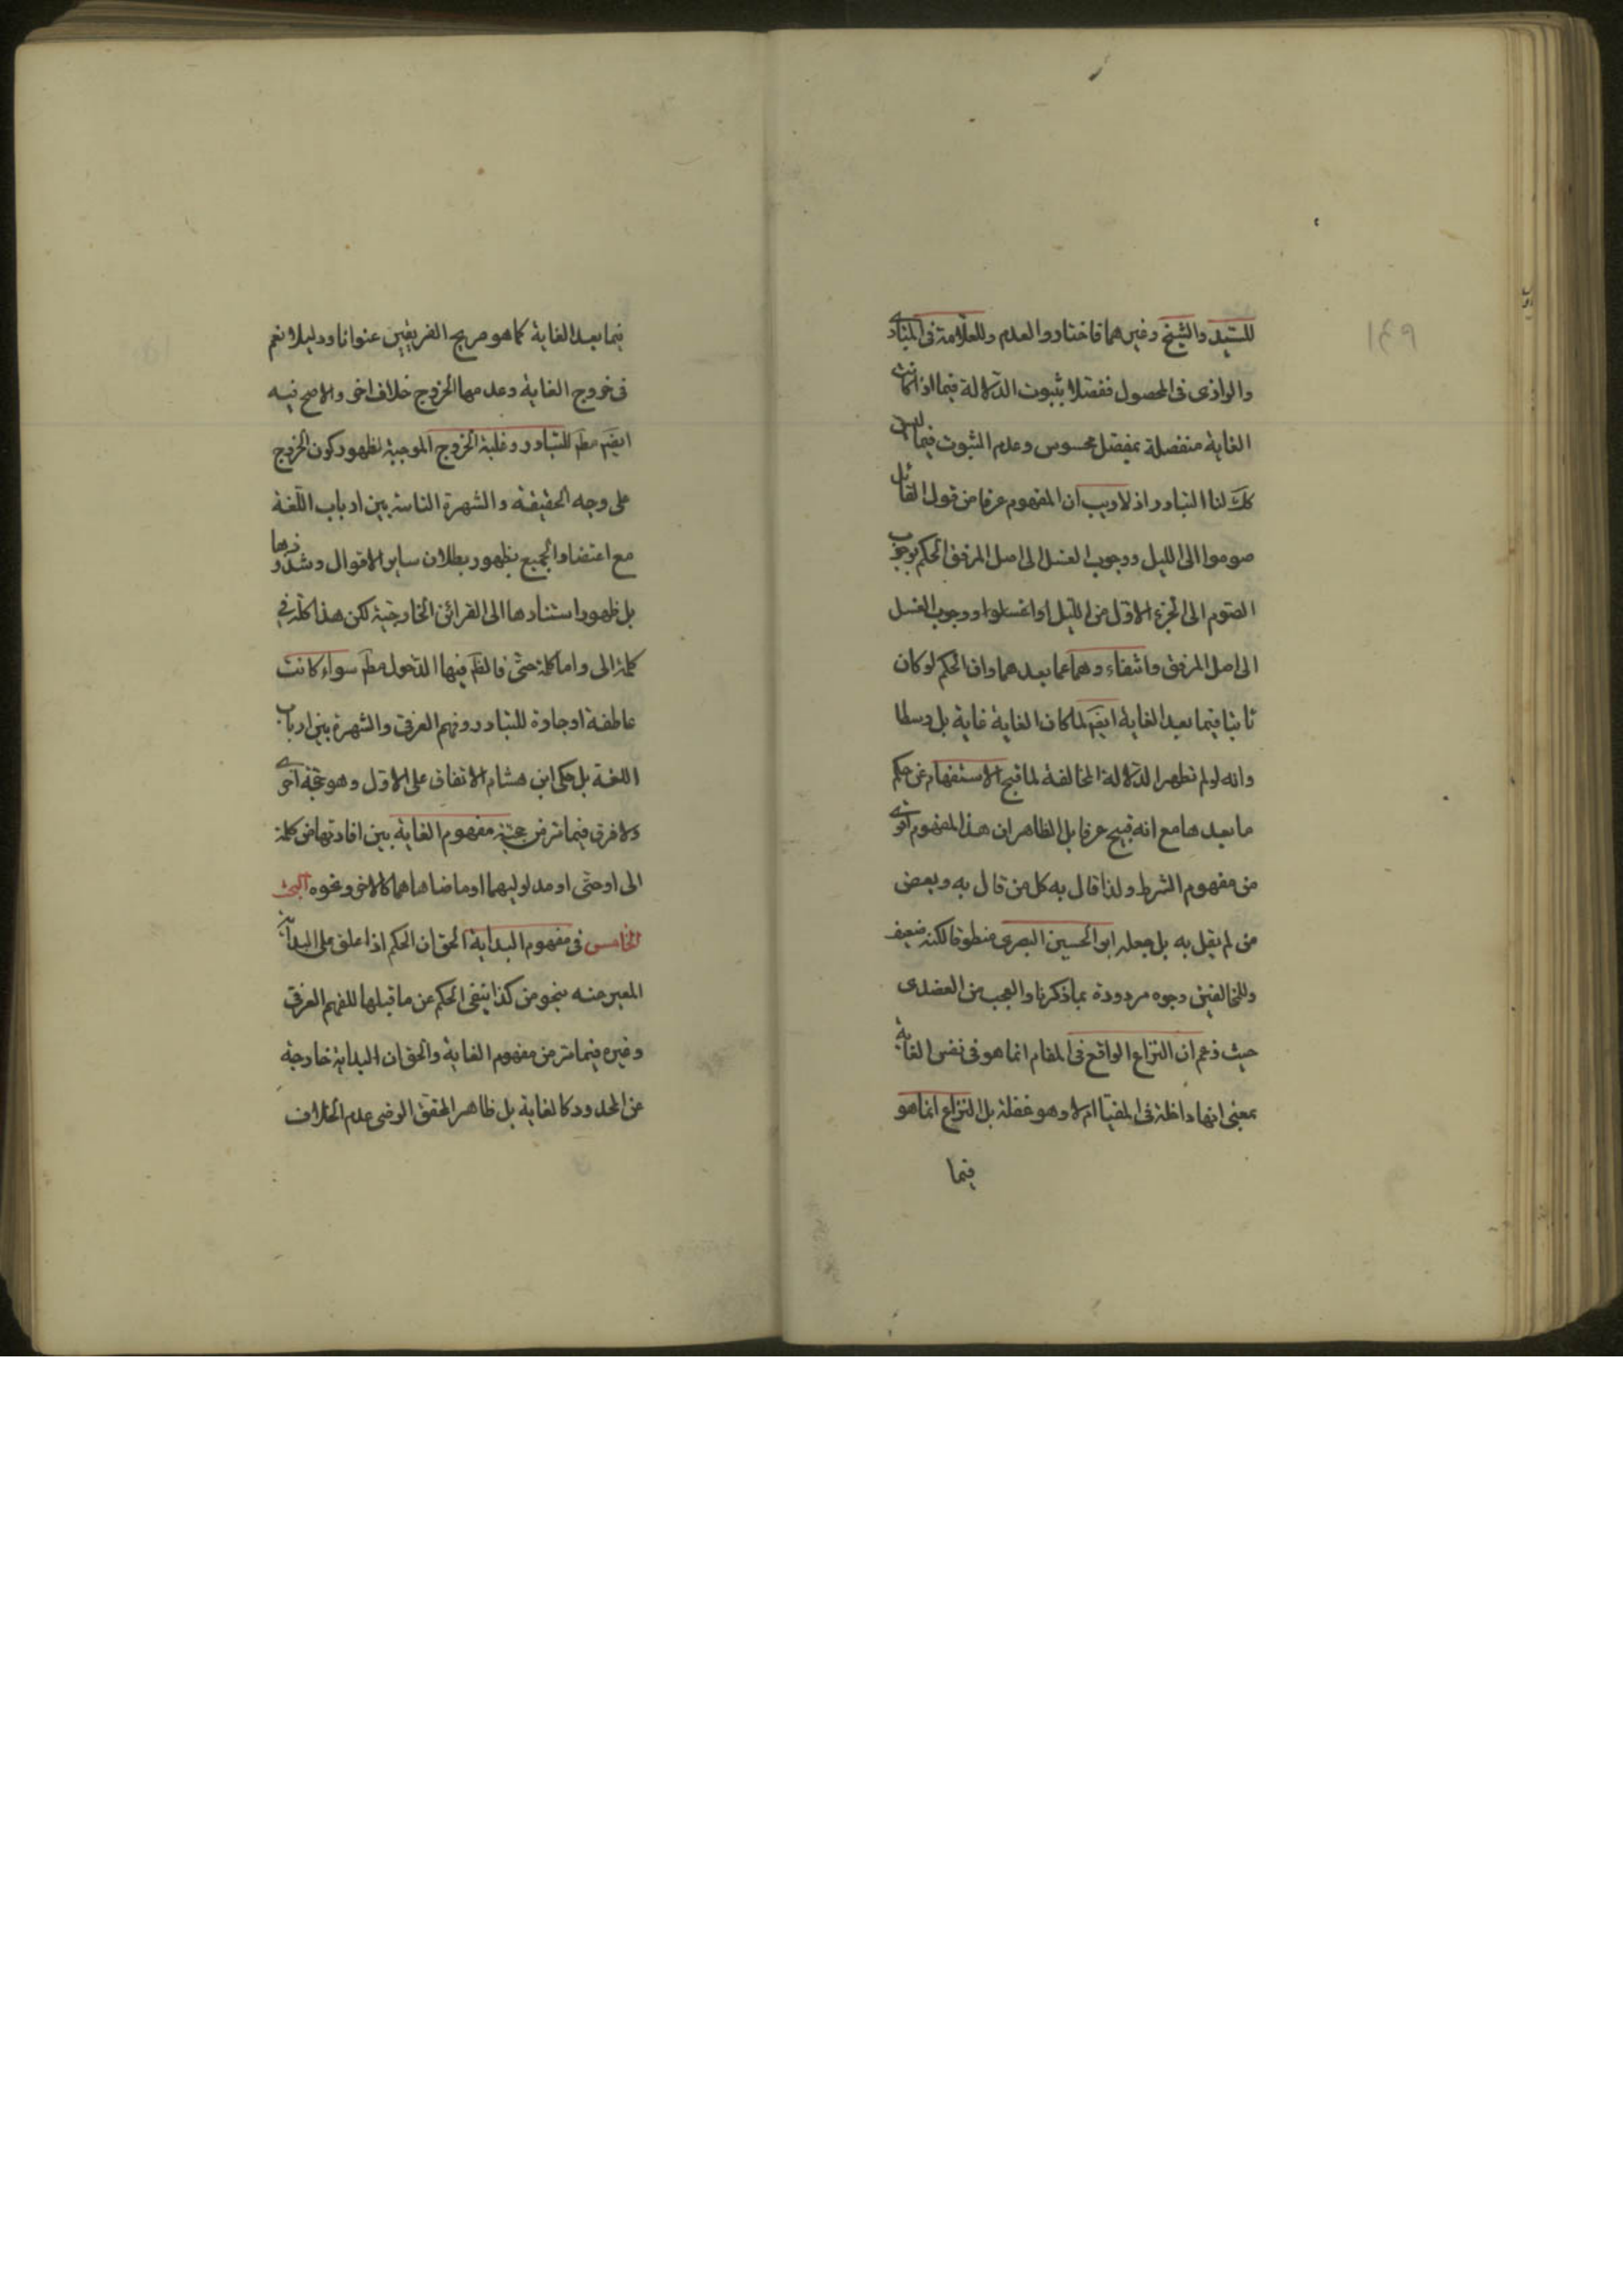 ١٤٩
للسّيد والشيخ وغيرهما فاختاروا العدم وللعلّامة في المبادى
والرازى فى المحصول ففصّلا بثبوت الدّلالة فيما اذا كانت
الغاية منفصلة بمفصل محسوس وعدم الثبوت فيما ليس
كك لنا التبادر اذ لا ريب ان المفهوم عرفا من قول القائل
صوموا الى الليل ووجوب الغسل الى اصل المرفق الحكم بوجوب
الصّوم الى الجزء الاوّل من اللّيل او اغسلوا ووجوب الغسل
الى اصل المرفق وانتفاءوهما عما بعدهما وان الحكم لو كان
ثابتا فيما بعد الغاية ايضَ لما كان الغاية غاية بل وسطا
وانه لو لم تظهر الدّلالة المخالفة لما قبح الاستفهام عن حكم
ما بعدها مع انه قبيح عرفا بل الظاهر ان هذا المفهوم اقوى
من مفهوم الشرط ولذا قال به كل من قال به وبعض
من لم يقل به بل جعله ابو الحسين البصرى منطوقا لكنه ضعيف
وللمخالفين وجوه مردودة بما ذكرنا والعجب من العضدى
حيث زعم ان النزاع الواقع فى المقام انما هو فى نفس الغاية
بمعنى انها داخلة فى المغيّا ام لا وهو غفلة بل النزاع انما هو
فيما
فيما بعد الغاية كما هو صريح الفريقين عنوانا ودليلا نعم
فى خروج الغاية وعدمها الخروج خلاف اخر والاصح فيه
ايضَ مطَ للتبادر وغلبة الخروج الموجبة لظهور كون الخروج
على وجه الحقيقة والشهرة الناسة بين ارباب اللّغة
مع اعتضاد الجميع بظهور بطلان ساير الاقوال وشذوذها
بل ظهور استنادها الى القرائن الخارجيّة لكن هذا كلّه في
كلمة الى واما كلمة حتّى فالظَ فيها الدّخول مطَ سواء كانت
عاطفة او جارة للتبادر وفهم العرف والشهرة بين ارباب
اللغة بل حكى ابن هشام الاتفاق على الاوّل وهو حجّة اخرى
ولا فرق فيما مرّ من حجيّة مفهوم الغاية بين افادتها من كلمة
الى او حتّى او مدلوليهما او ما ضاهاهما كالاخر ونحوه البحث
الخامس فى مفهوم البداية الحق ان الحكم اذا علق على البداية
المعبر عنه بنحو من كذا ينتفى الحكم عن ما قبلها للفهم العرفى
وغيره فيما مرّ من مفهوم الغاية والحق ان البداية خارجة
عن المحدود كالغاية بل ظاهر المحقق الرضى عدم الخلاف